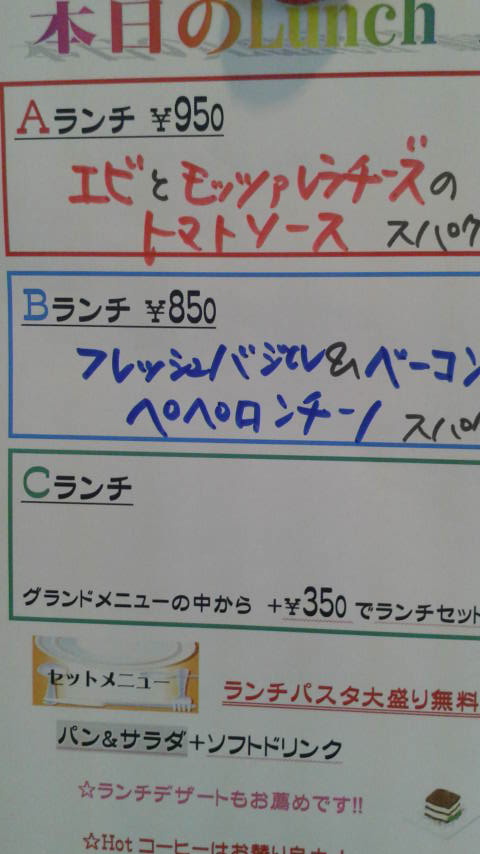 本日のLunch
Aランチ ¥950
エビとモッツァレラチーズの
トマトソース スパゲ
Bランチ ¥850
フレッシュバジル&ベーコン
ペペロンチーノ スパ
Cランチ
グランドメニューの中から +¥350 でランチセット
セットメニュー
ランチパスタ大盛り無料
パン&サラダ+ソフトドリンク
☆ランチデザートもお薦めです!!
☆Hot コーヒーはお替り自由!